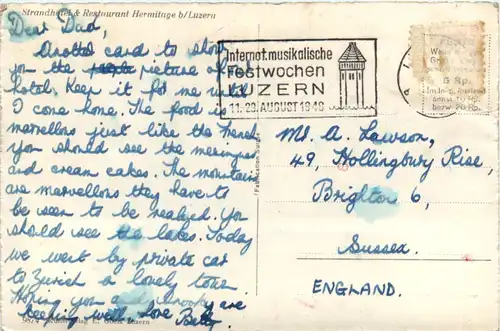 Strandhotel & Restaurant Hermitage b/Luzern
Dear Dad,
Another card to show
you the people picture of
hotel. Keep it for me until
I come home. The food is
marvellous just like the French,
you should see the meringues
and cream cakes. The mountains
are marvellous they have to
be seen to be realized. You
should see the lakes. Today
we went by private car
to Zurich a lovely tour.
Hoping you and are
keeping well. Love Betty.
Internat. musikalische
Festwochen
LUZERN
11.-29. AUGUST 1949
Mr. A. Lawson,
49, Hollingbury Rise,
Brighton 6,
Sussex.
ENGLAND.